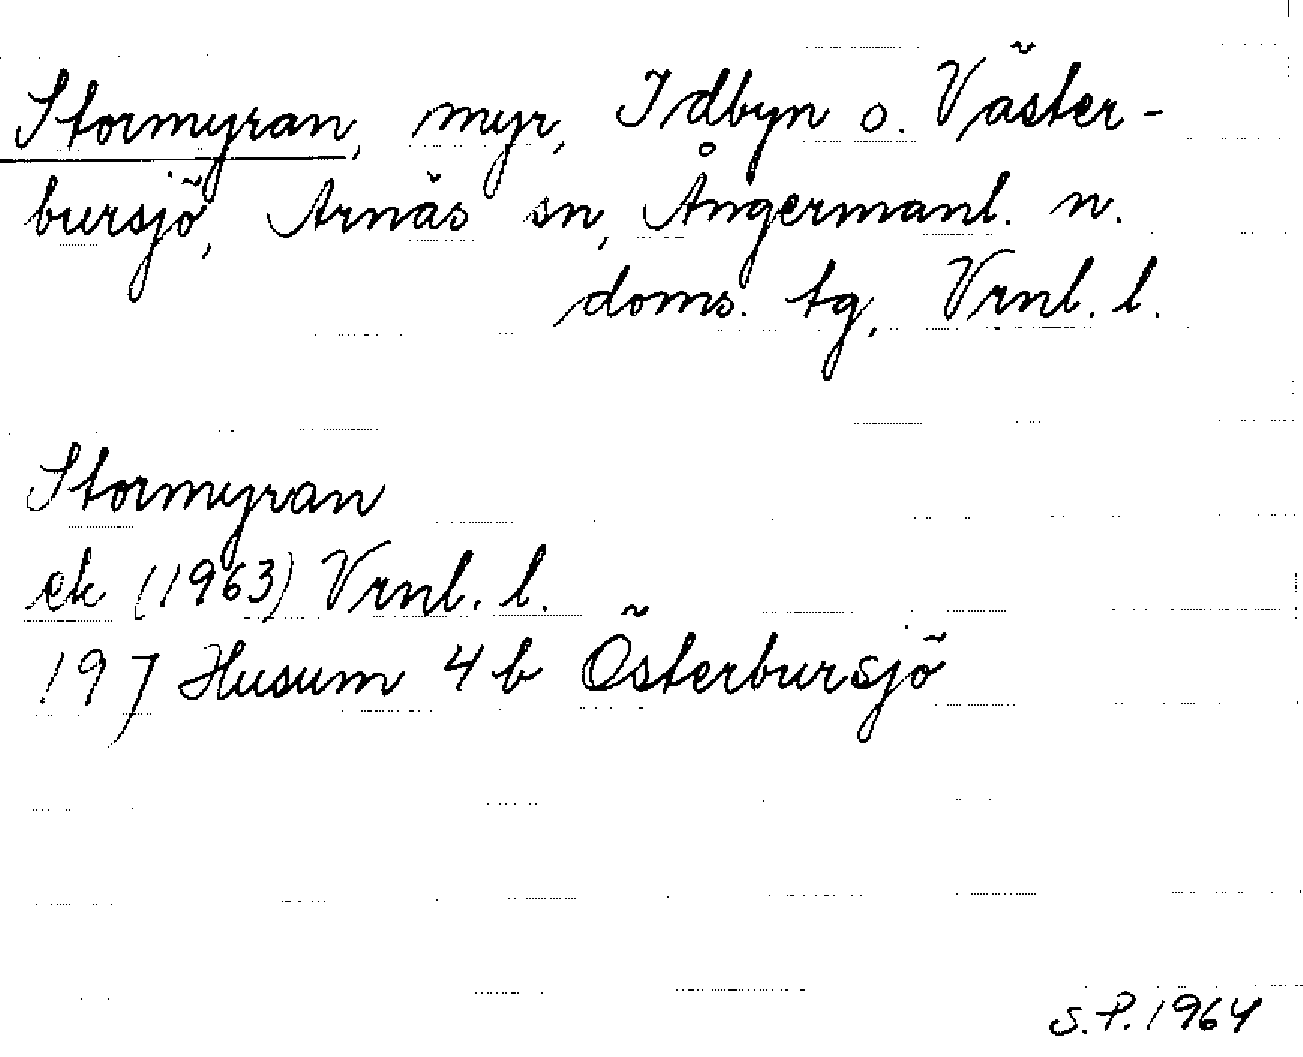 Stormyran, myr, Idbyn o. Väster-
bursjö, Arnäs sn, Ångermanl. n.
doms. tg, Vrnl. l.
Stormyran
ek (1963) Vrnl. l.
19 J Husum 4 b Österbursjö
S.P. 1964